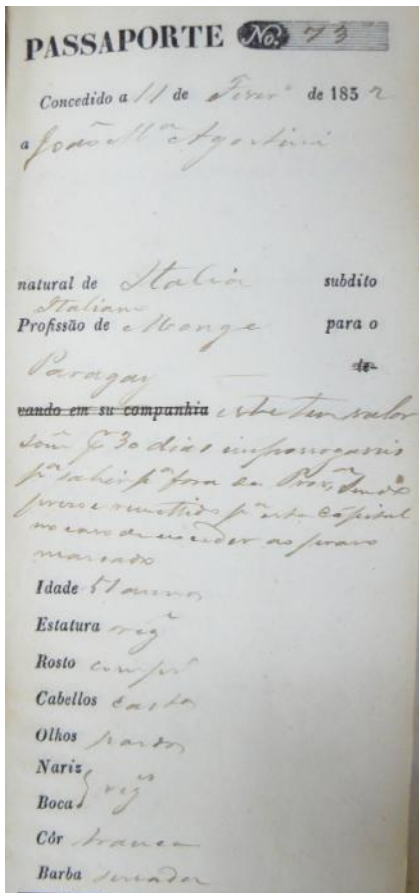 PASSAPORTE No. 73
Concedido a 11 de Fever.º de 1852
a João M.ª Agostini
natural de Italia subdito
Italiano
Profissão de Monge para o
Paragay — le-
vando em su companhia este tem valor
som.e p.r 30 dias improrogaveis
p.ª sahir p.ª fora da Prov.ª, sendo
preso e remettido p.ª esta Capital
no caso de exceder ao praso
marcado
Idade 51 annos
Estatura reg.r
Rosto comp.º
Cabellos casto
Olhos pardos
Nariz
Boca } reg.es
Côr branca
Barba serrada